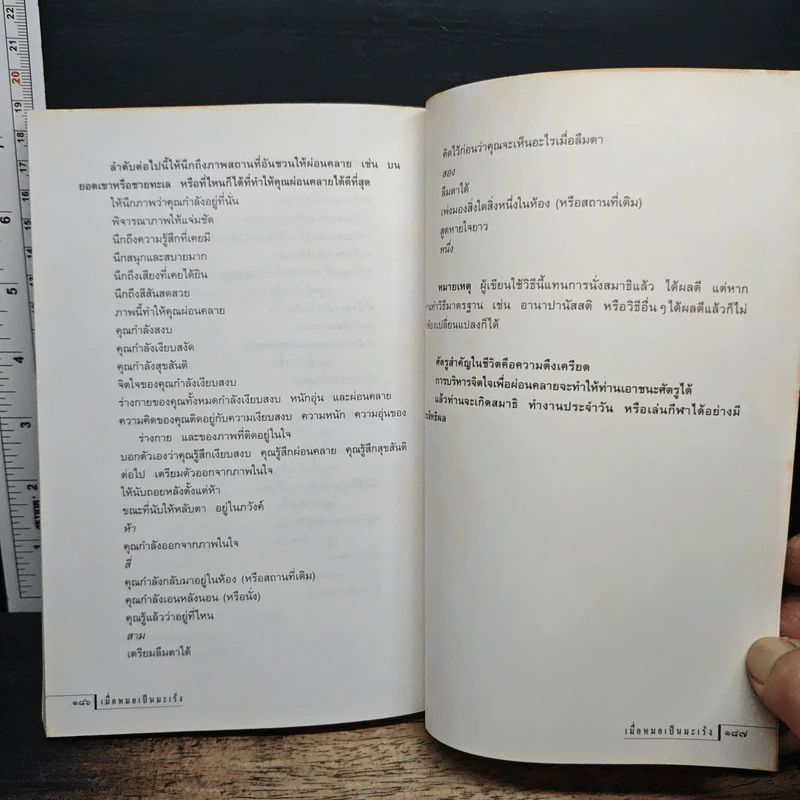 ลำดับต่อไปนี้ให้นึกถึงภาพสถานที่อันชวนให้ผ่อนคลาย เช่น บน
ยอดเขาหรือชายทะเล หรือที่ไหนก็ได้ที่ทำให้คุณผ่อนคลายได้ดีที่สุด
ให้นึกภาพว่าคุณกำลังอยู่ที่นั่น
พิจารณาภาพให้แจ่มชัด
นึกถึงความรู้สึกที่เคยมี
นึกสนุกและสบายมาก
นึกถึงเสียงที่เคยได้ยิน
นึกถึงสีสันสดสวย
ภาพนี้ทำให้คุณผ่อนคลาย
คุณกำลังสงบ
คุณกำลังเงียบสงัด
คุณกำลังสุขสันติ
จิตใจของคุณกำลังเงียบสงบ
ร่างกายของคุณทั้งหมดกำลังเงียบสงบ หนักอุ่น และผ่อนคลาย
ความคิดของคุณติดอยู่กับความเงียบสงบ ความหนัก ความอุ่นของ
ร่างกาย และของภาพที่ติดอยู่ในใจ
บอกตัวเองว่าคุณรู้สึกเงียบสงบ คุณรู้สึกผ่อนคลาย คุณรู้สึกสุขสันติ
ต่อไป เตรียมตัวออกจากภาพในใจ
ให้นับถอยหลังตั้งแต่ห้า
ขณะที่นับให้หลับตา อยู่ในภวังค์
ห้า
คุณกำลังออกจากภาพในใจ
สี่
คุณกำลังกลับมาอยู่ในห้อง (หรือสถานที่เดิม)
คุณกำลังเอนหลังนอน (หรือนั่ง)
คุณรู้แล้วว่าอยู่ที่ไหน
สาม
เตรียมลืมตาได้
๑๘๖ เมื่อหมอเป็นมะเร็ง
คิดไว้ก่อนว่าคุณจะเห็นอะไรเมื่อลืมตา
สอง
ลืมตาได้
เพ่งมองสิ่งใดสิ่งหนึ่งในห้อง (หรือสถานที่เดิม)
สูดหายใจยาว
หนึ่ง
หมายเหตุ ผู้เขียนใช้วิธีนี้แทนการนั่งสมาธิแล้ว ได้ผลดี แต่หาก
ทำวิธีมาตรฐาน เช่น อานาปานัสสติ หรือวิธีอื่นๆ ได้ผลดีแล้วก็ไม่
ต้องเปลี่ยนแปลงก็ได้
ศัตรูสำคัญในชีวิตคือความตึงเครียด
การบริหารจิตใจเพื่อผ่อนคลายจะทำให้ท่านเอาชนะศัตรูได้
แล้วท่านจะเกิดสมาธิ ทำงานประจำวัน หรือเล่นกีฬาได้อย่างมี
เมื่อหมอเป็นมะเร็ง ๑๘๗